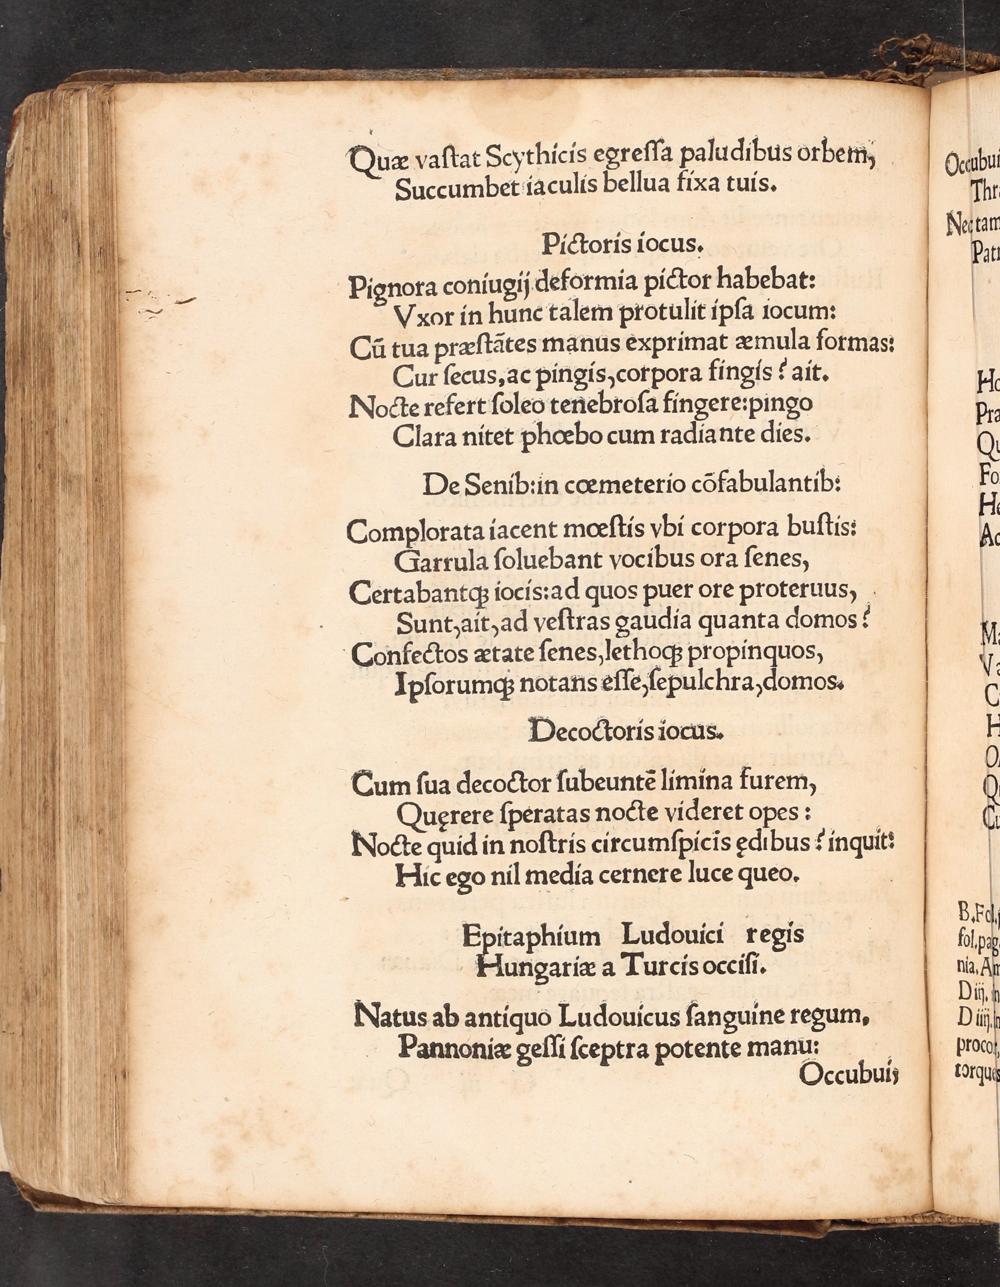 Quæ vaſtat Scythicis egreſſa paludibus orbem,
Succumbet iaculis bellua fixa tuis.
Pictoris iocus.
Pignora coniugij deformia pictor habebat:
Vxor in hunc talem protulit ipſa iocum:
Cū tua præſtātes manus exprimat æmula formas:
Cur ſecus, ac pingis, corpora fingis? ait.
Nocte refert ſoleo tenebroſa fingere: pingo
Clara nitet phœbo cum radiante dies.
De Senib: in cœmeterio cōfabulantib:
Complorata iacent mœſtis vbi corpora buſtis:
Garrula ſoluebant vocibus ora ſenes,
Certabantqꝫ iocis: ad quos puer ore proteruus,
Sunt, ait, ad veſtras gaudia quanta domos?
Confectos ætate ſenes, lethoqꝫ propinquos,
Ipſorumqꝫ notans eſſe, ſepulchra, domos.
Decoctoris iocus.
Cum ſua decoctor ſubeuntē limina furem,
Quęrere ſperatas nocte videret opes:
Nocte quid in noſtris circumſpicis ędibus? inquit:
Hic ego nil media cernere luce queo.
Epitaphium Ludouici regis
Hungariæ a Turcis occiſi.
Natus ab antiquo Ludouicus ſanguine regum,
Pannoniæ geſſi ſceptra potente manu:
Occubui,
Occubui
Thr
Nec tam
Patr
Ho
Pra
Qu
Fo
He
Ac
Ma
Va
C
H
O
Qu
Cu
B. Fol.
fol. pag
nia. Am
D iij. in
D iiij. in
procor,
torques